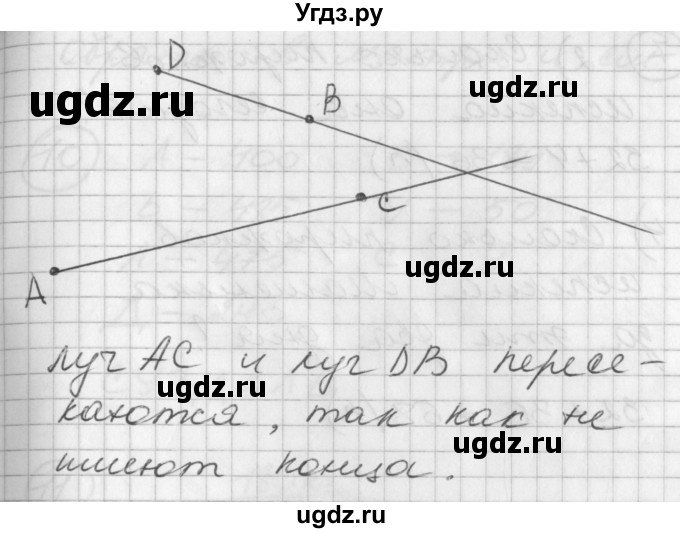 Угдз.ру
D
B
ugdz.ru
ugdz.ru
C
A
ugdz.ru
луч AC и луч DB пересе-
ugdz.ru
каются, так как не
ugdz.ru
имеют конца.
ugdz.ru